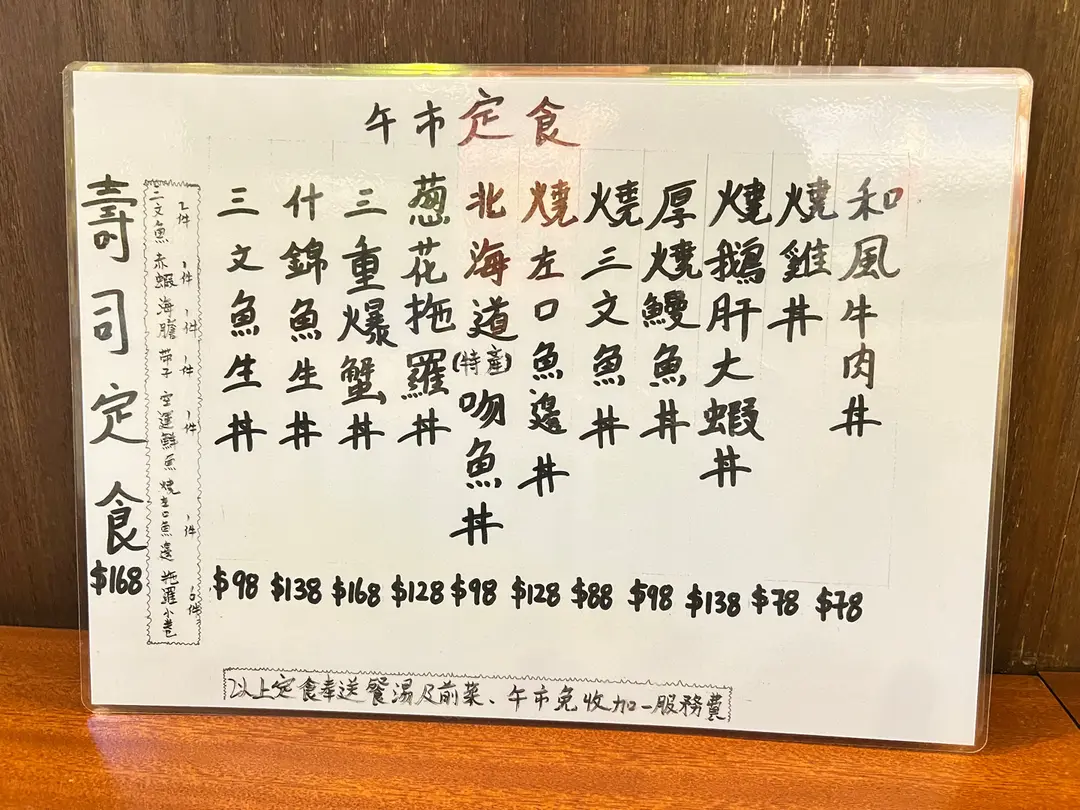 午市定食
和風牛肉丼
$78
燒雞丼
$78
燒鵝肝大蝦丼
$138
厚燒鰻魚丼
$98
燒三文魚丼
$88
燒左口魚邊丼
$128
北海道(特產)吻魚丼
$98
葱花拖羅丼
$128
三重爆蟹丼
$168
什錦魚生丼
$138
三文魚生丼
$98
壽司定食
$168
三文魚2件 赤蝦1件 海膽1件 帶子1件 空運鮮魚1件 燒左口魚邊1件 拖羅小卷6件
以上定食奉送餐湯及前菜、午市免收加一服務費